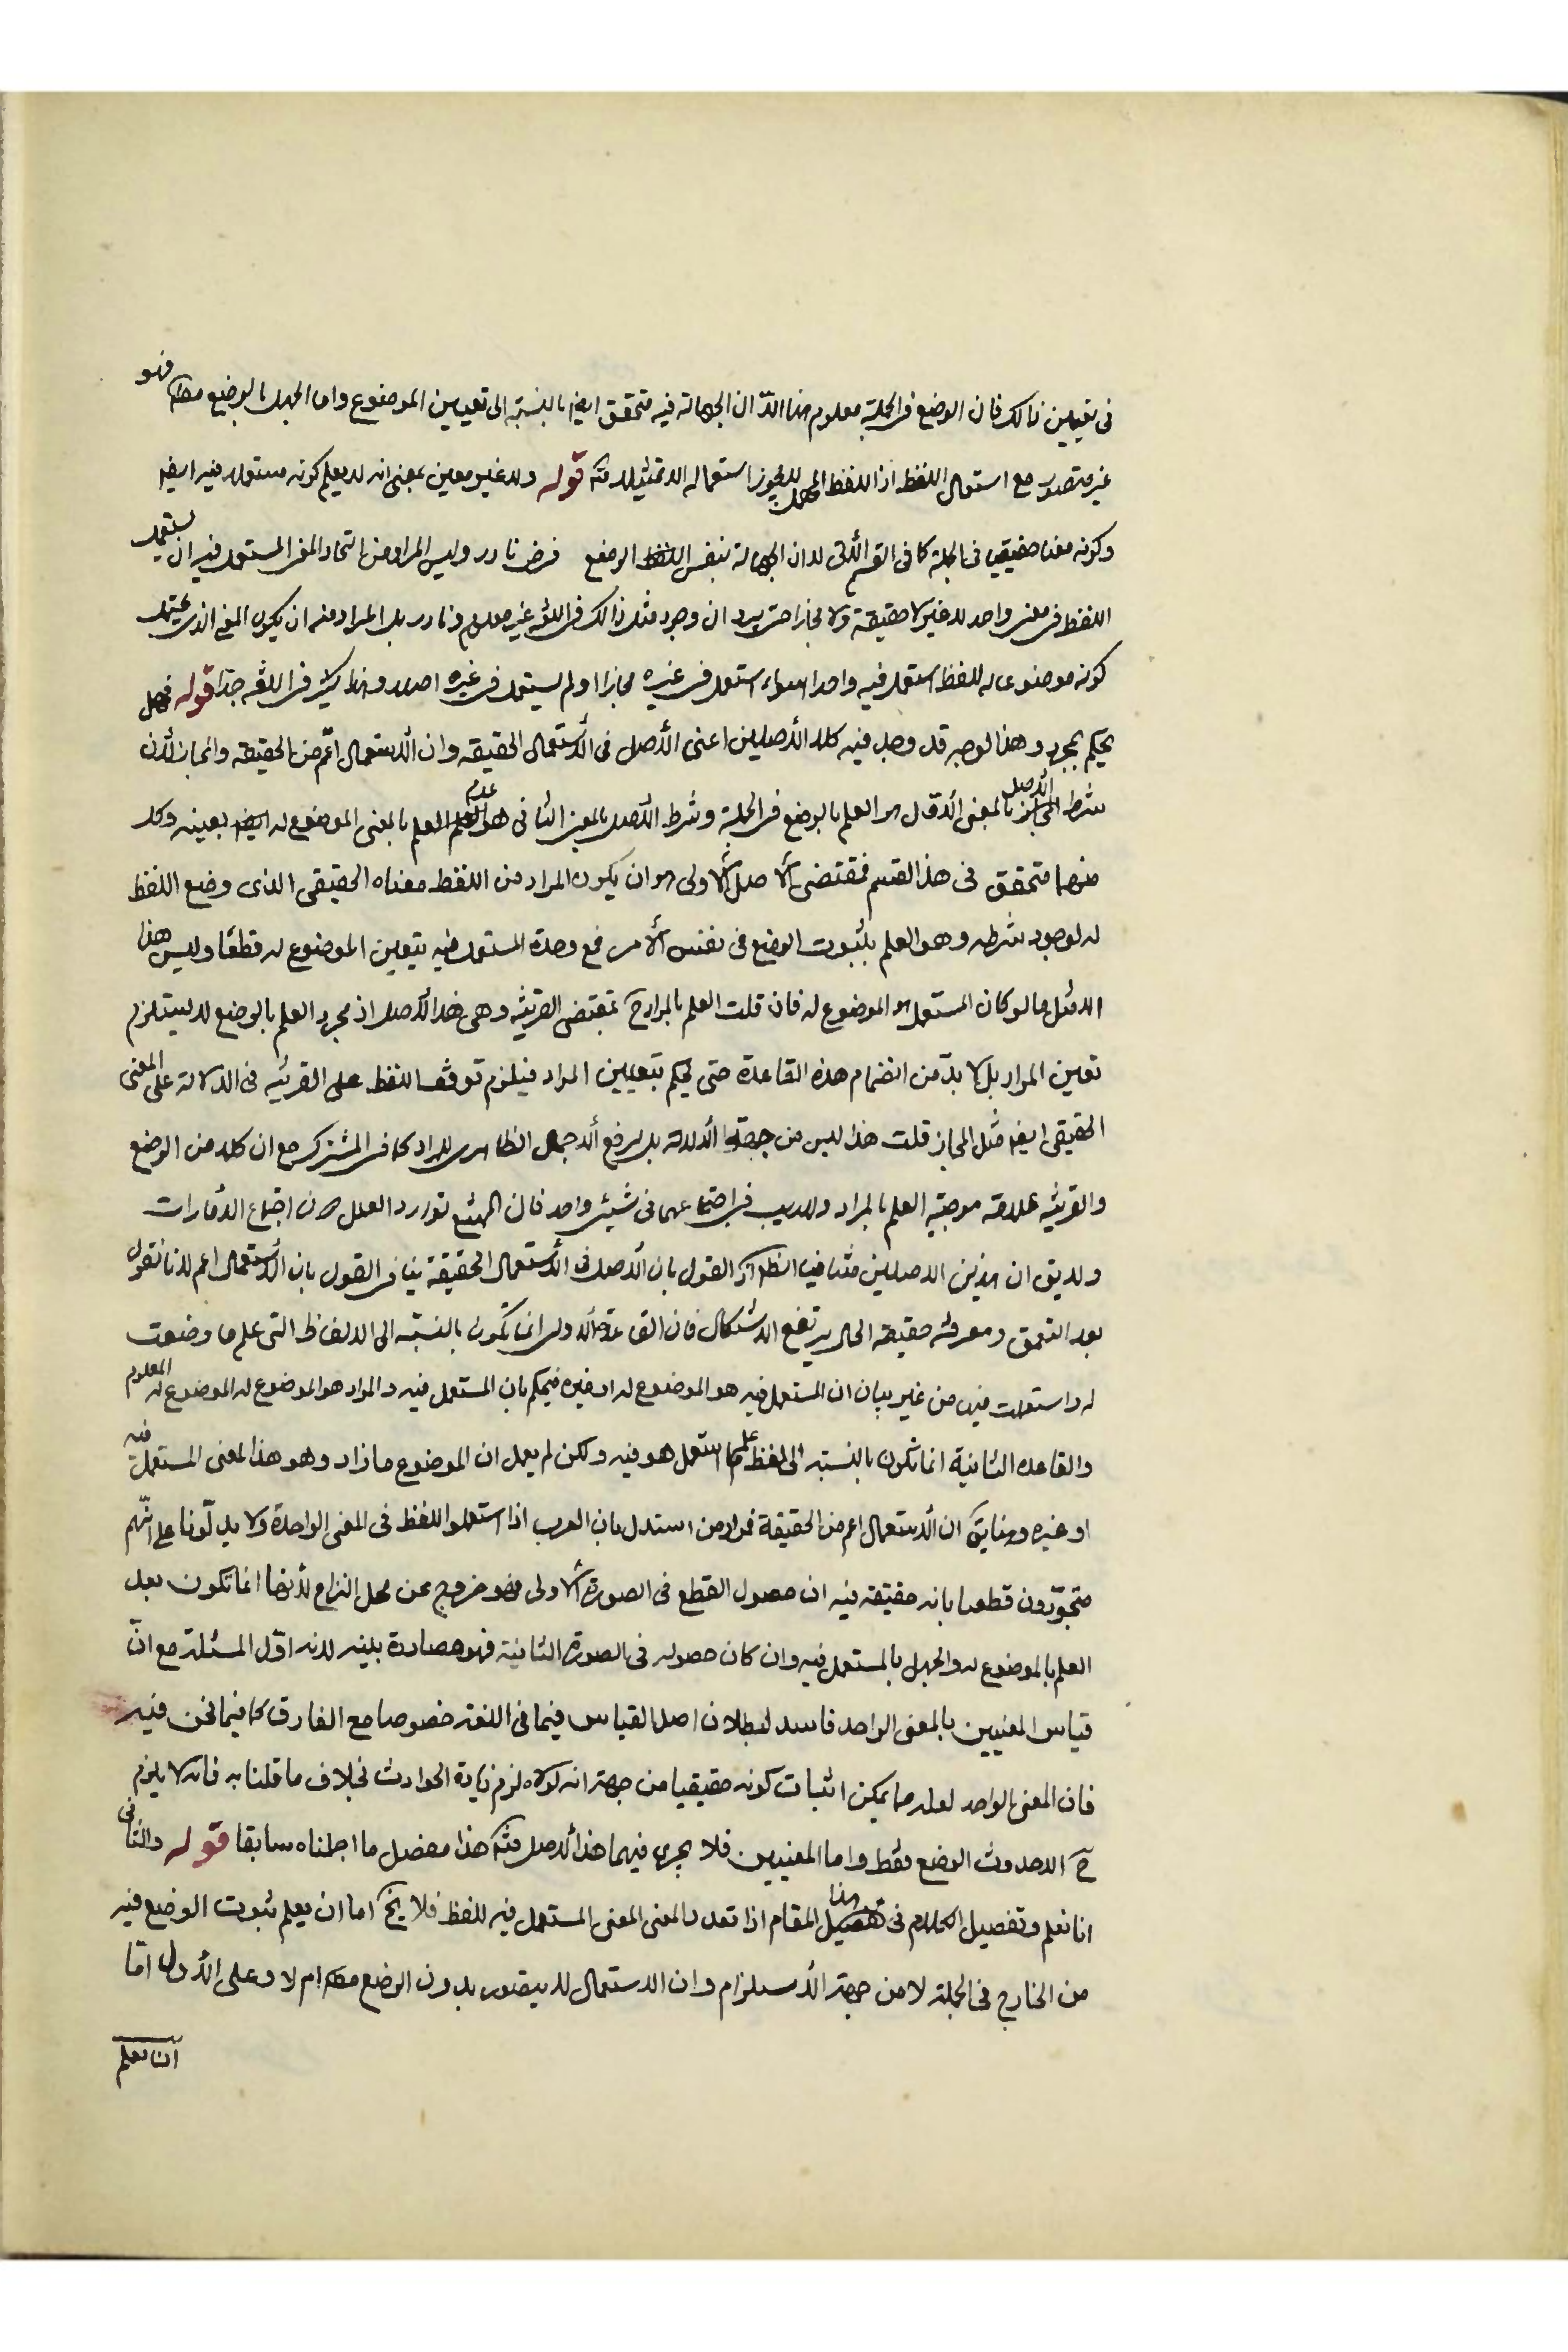 فى تعيين ذالك فان الوضع فى الجملة معلوم هنا الا ان الجهالة فيه متحقق ايضا بالنسبة الى تعيين الموضوع واما الجهل بالوضع مطلقا فهو
غير متصور مع استعمال اللفظ اذ اللفظ المهمل لا يجوز استعماله الا تمثيلا منه قوله ولا غير معين بمعنى انه لا يعلم كونه مستعملا فيه ايضا
وكونه معنا حقيقيا فى الجملة كما فى القسم الاتى لان الجهالة بنفس الوضع فرض نادر وليس المراد من اتحاد المعنى المستعمل فيه ان يستعمل
اللفظ فى معنى واحد لا غير لا حقيقة ولا مجازا حتى يرد ان وجود مثل ذالك فى اللغة غير معلوم او نادر بل المراد منه ان يكون المعنى الذى يحتمل
كونه موضوعا له للفظ استعمل فيه واحدا سواء استعمل فى غيره مجازا او لم يستعمل فى غيره اصلا وهذا كثير فى اللغة جدا قوله فهل
يحكم بمجرد وهذا الوجه قد وجد فيه كلا الأصلين اعنى الأصل فى الأستعمال الحقيقة وان الأستعمال اعم من الحقيقة والمجاز لأن
شرط الأصل بالمعنى الأول هو العلم بالوضع فى الجملة وشرط الأصل بالمعنى الثانى هو عدم العلم بالمعنى الموضوع له بعينه وكل
منهما متحقق فى هذا القسم فمقتضى الأصل الأولى هو ان يكون المراد من اللفظ معناه الحقيقى الذى وضع اللفظ
له لوجود شرطه وهو العلم بثبوت الوضع فى نفس الأمر فمع وحدة المستعمل فيه يتعين الموضوع له قطعا وليس هذا
الا مثل ما لو كان المستعمل هو الموضوع له فان قلت العلم بالمراد ح بمقتضى القرينة وهى هذا الأصل اذ مجرد العلم بالوضع لا يستلزم
تعين المراد بل لا بد من انضمام هذه القاعدة حتى يحكم بتعيين المراد فيلزم توقف اللفظ على القرينه فى الدلالة على المعنى
الحقيقى ايضا مثل المجاز قلت هذا ليس من جهة الدلالة بل لرفع الأجمال الظاهرى للمراد كما فى المشترك مع ان كلا من الوضع
والقرينه علامة موجبة العلم بالمراد ولا ريب فى اجتماعهما فى شيئ واحد فان الممتنع توارد العلل لا اجتماع الأمارات
ولا يق ان هذين الاصلين متنافيان القول بان الأصل فى الأستعمال الحقيقة ينافى القول بان الأستعمال اعم لانا نقول
بعد التعمق ومعرفة حقيقة الحال يرتفع الاشكال فان القاعدة الأولى انما تكون بالنسبة الى الالفاظ التى علم ما وضعت
له واستعملت فيه من غير بيان ان المستعمل فيه هو الموضوع له او غيره فيحكم بان المستعمل فيه والمراد هو الموضوع له الموضوع له المعلوم
والقاعده الثانية انما تكون بالنسبة الى لفظ علم ما استعمل هو فيه ولكن لم يعلم ان الموضوع ماذا وهو هذا لمعنى المستعمل فيه
او غيره وهنا يق ان الأستعمال اعم من الحقيقة فمراد من استدل بان العرب اذا استعملوا اللفظ فى المعنى الواحدة ولا يدلونا على انهم
متجوزون قطعنا بانه حقيقة فيه ان حصول القطع فى الصورة الأولى فهو خروج عن محل النزاع لأنها انما تكون بعد
العلم بالموضوع له والجهل بالمستعمل فيه وان كان حصوله فى الصورة الثانية فهو مصادرة بينه لانه اول المسئلة مع ان
قياس المعنيين بالمعنى الواحد فاسد لبطلان اصل القياس فيما فى اللغة خصوصا مع الفارق كما فيما نحن فيه
فان المعنى الواحد لعله مما يمكن اثبات كونه حقيقيا من جهة انه لولاه لزم زيادة الحوادث بخلاف ما قلنا به فانه لا يلزم
ح الا حدوث الوضع فقط واما المعنيين فلا يجرى فيهما هذا الأصل منه هذا مفصل ما اجملناه سابقا قوله والثانى
انا نعلم وتفصيل الكلام فى هذا المقام اذا تعدد المعنى المعنى المستعمل فيه للفظ فلا يخ اما ان يعلم ثبوت الوضع فيه
من الخارج فى الجملة لا من جهة الأستلزام وان الاستعمال لا يتصور بدون الوضع مطلقا ام لا وعلى الأول اما
ان نعلم